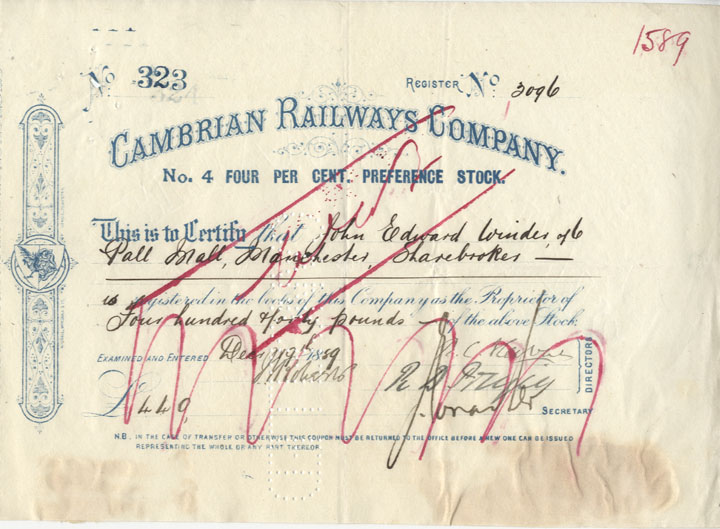 1589
No 323
REGISTER No 3096
CAMBRIAN RAILWAYS COMPANY.
No. 4 FOUR PER CENT. PREFERENCE STOCK.
This is to Certify that John Edward Winder, of 6
Pall Mall, Manchester, Sharebroker —
is registered in the books of this Company as the Proprietor of
Four hundred & forty pounds of the above Stock
EXAMINED AND ENTERED Dec 19 1889
£ 440
DIRECTORS
SECRETARY
N.B. IN THE CASE OF TRANSFER OR OTHERWISE THIS COUPON MUST BE RETURNED TO THE OFFICE BEFORE A NEW ONE CAN BE ISSUED
REPRESENTING THE WHOLE OR ANY PART THEREOF